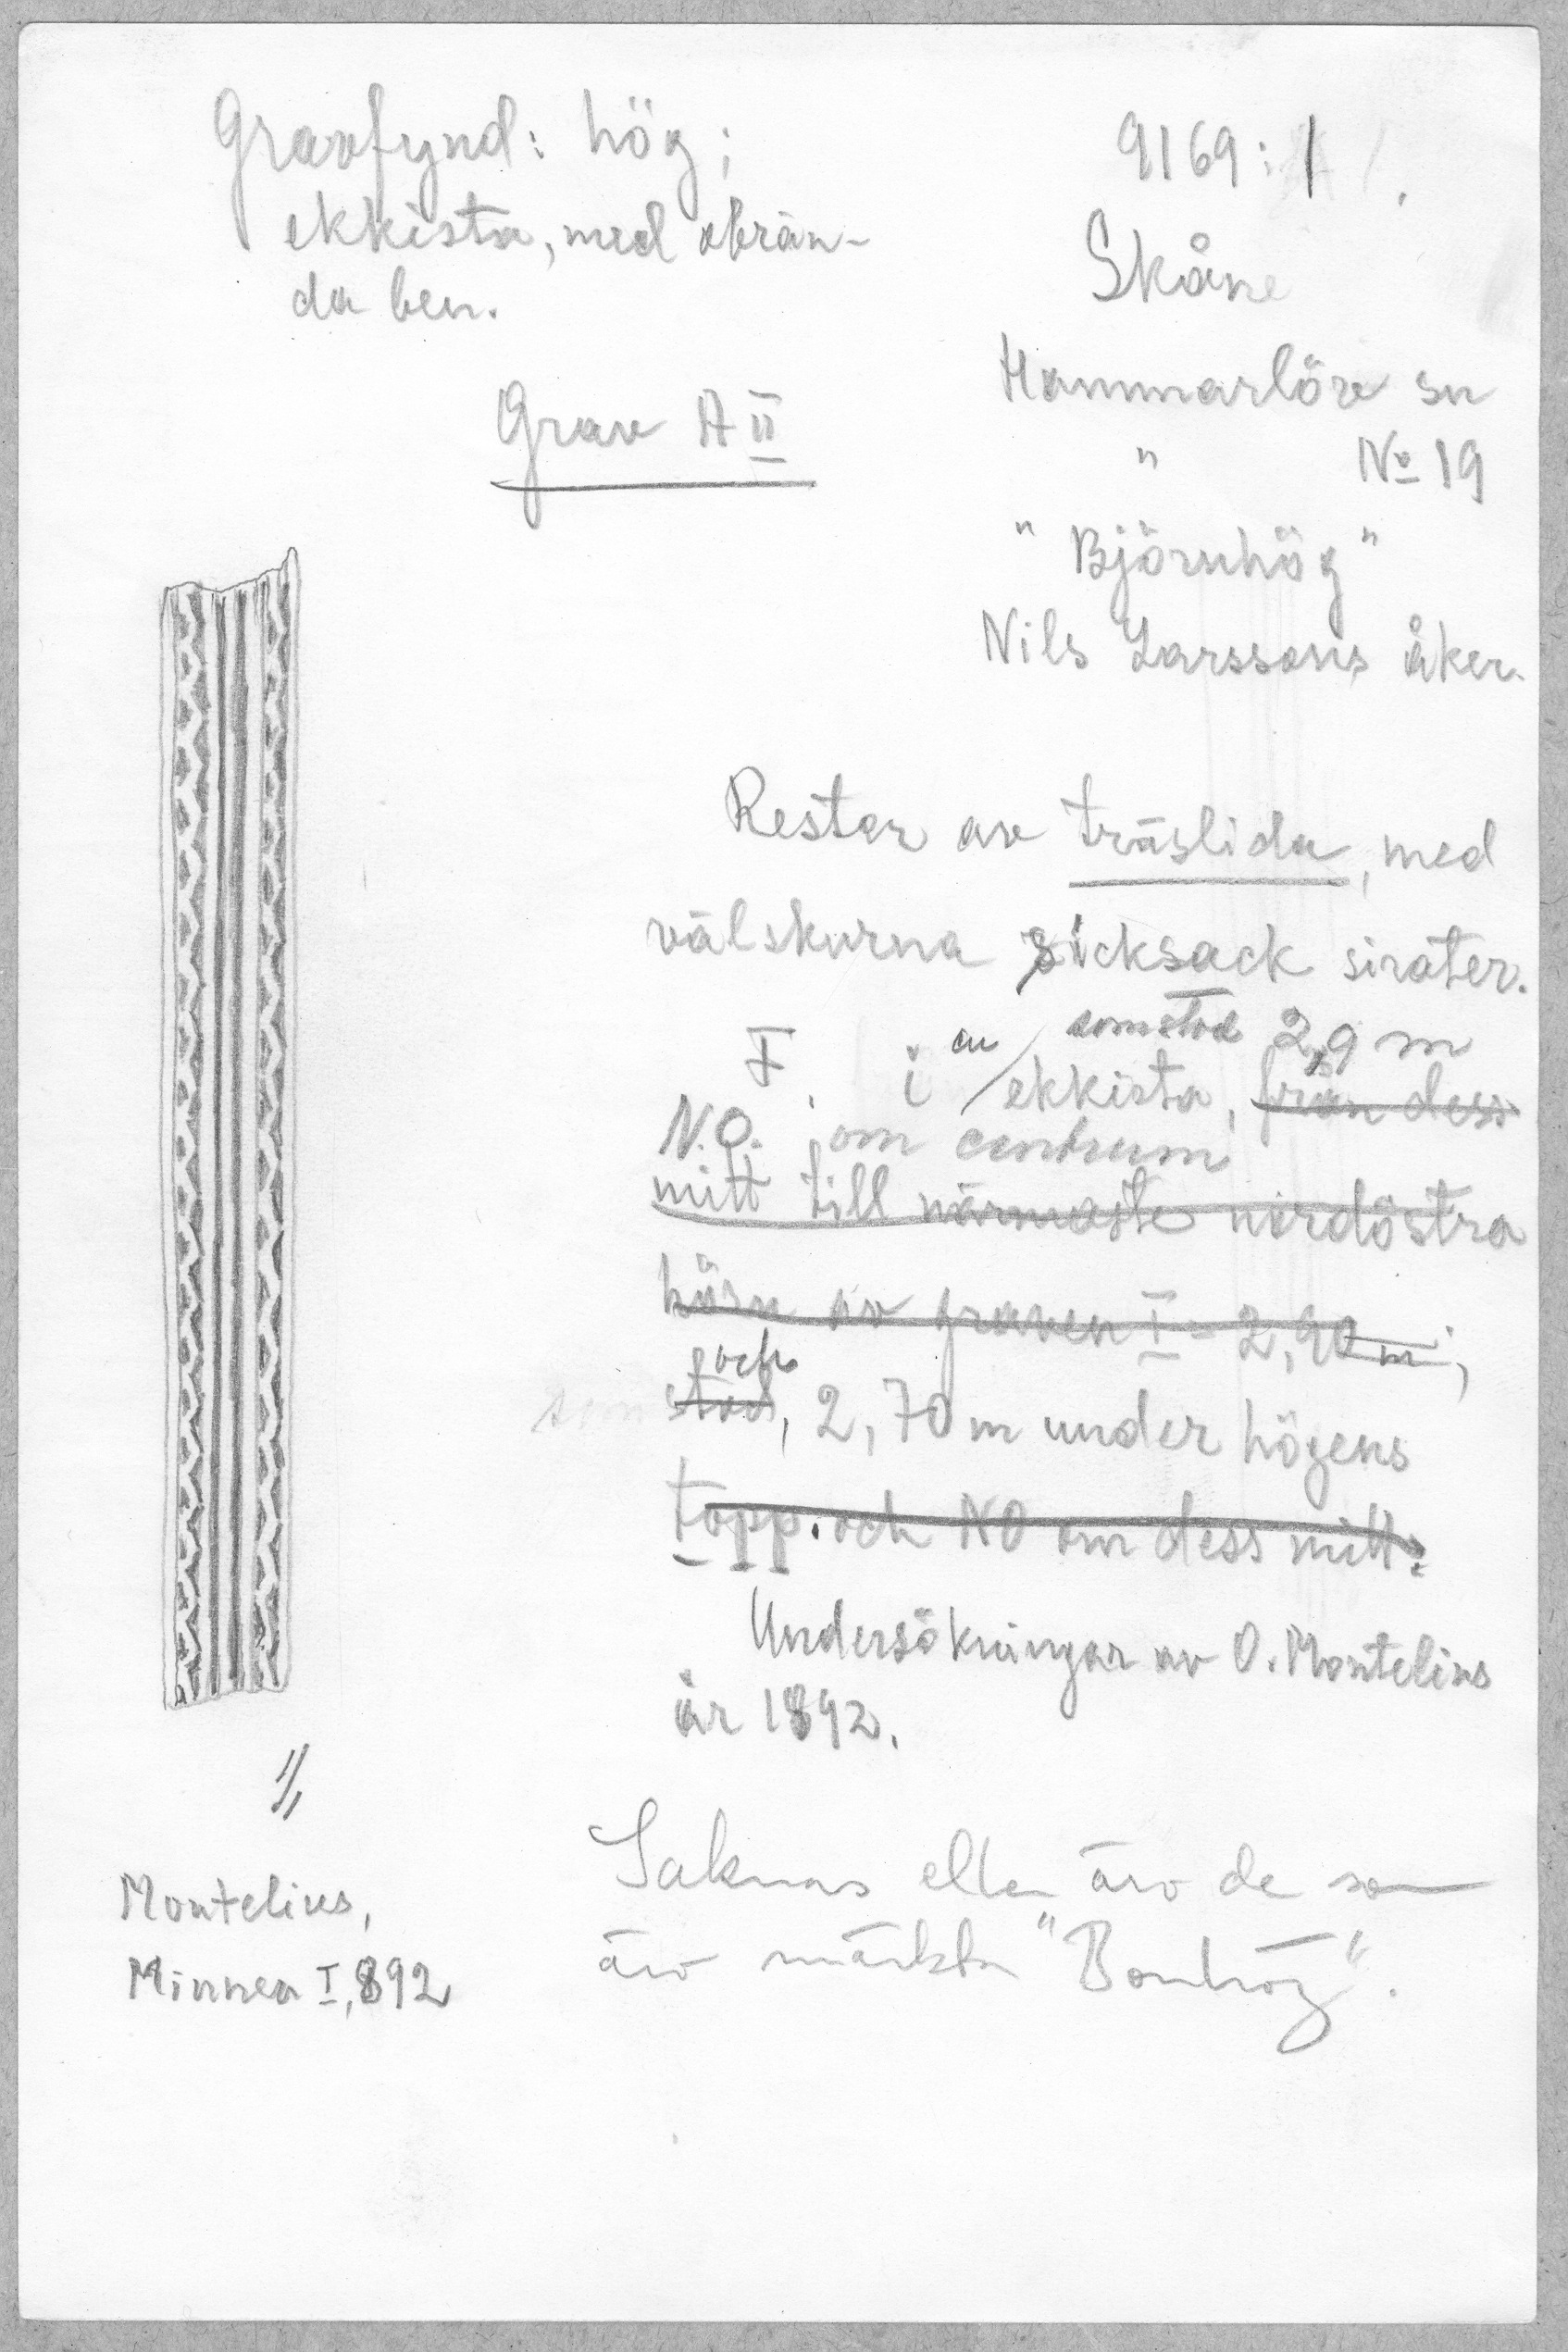 Gravfynd: hög;
ekkista, med obrän-
da ben.
Grav A II
9169:1
Skåne
Hammarlöv sn
" No 19
"Björnhög"
Nils Larssons åker.
Restar av träslida, med
välskurna sicksack sirater.
som stod 2,9 m
F. i en ekkista, från dess
N.O. om centrum
mitt till närmaste nordöstra
hörn av graven I = 2,90 m;
och
som stod, 2,70 m under högens
topp. och NO om dess mitt.
Undersökningar av O. Montelius
år 1892.
1/1
Montelius,
Minnen I, 892
Saknas eller äro de som
äro märkta "Bonhög".